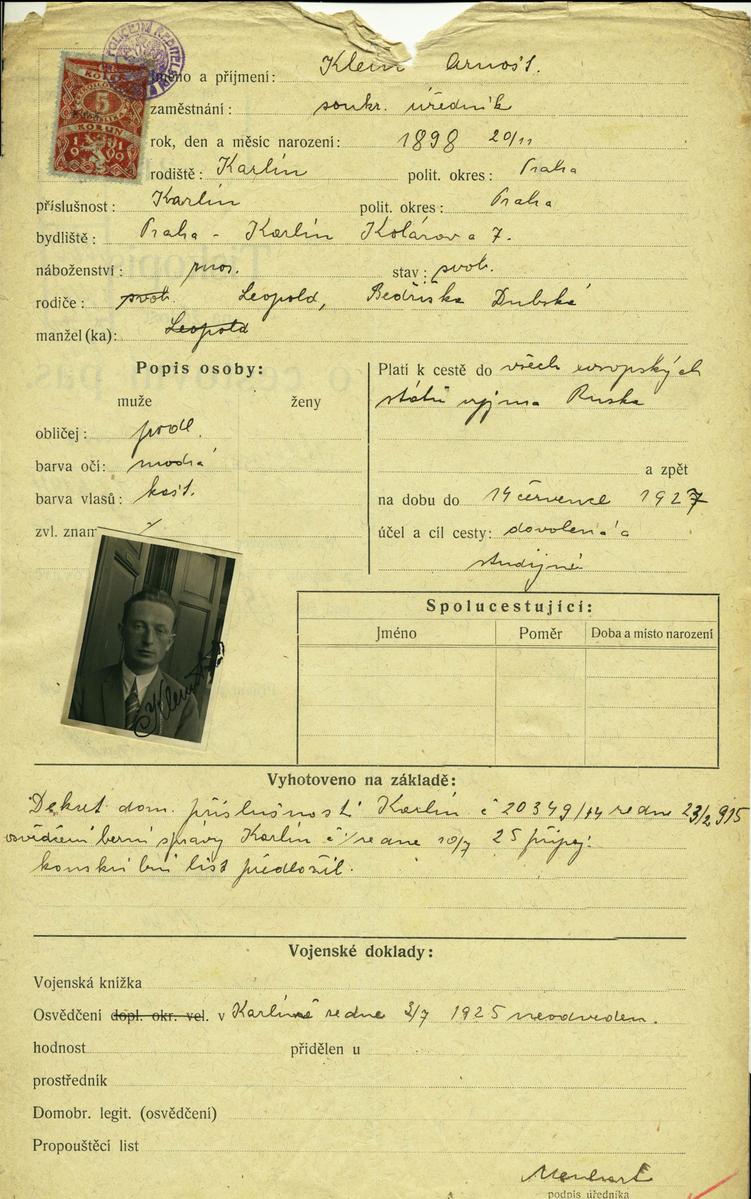 POLICEJNÍ ŘEDITELSTVÍ
5
KORUN
1919
jméno a příjmení: Klein Arnošt.
zaměstnání: soukr. úředník
rok, den a měsíc narození: 1898 20/11
rodiště: Karlín polit. okres: Praha
příslušnost: Karlín polit. okres: Praha
bydliště: Praha - Karlín Kolárova 7.
náboženství: mos. stav: svob.
rodiče: svob. Leopold, Bedřiška Dubská
manžel (ka): Leopold
Popis osoby:
muže ženy
obličej: podl.
barva očí: modrá
barva vlasů: kašt.
zvl. znam
Platí k cestě do všech evropských
států vyjma Ruska
a zpět
na dobu do 14 července 1927
účel a cíl cesty: dovolená a
studijní
Klein
Spolucestující:
Jméno Poměr Doba a místo narození
Vyhotoveno na základě:
Dekret dom. příslušnosti Karlín č 20349/14 ze dne 23/2 915
osvědčení berní správy Karlín č ze dne 10/7 25 připoj.
konskribční list předložil.
Vojenské doklady:
Vojenská knížka
Osvědčení dopl. okr. vel. v Karlíně ze dne 3/7 1925 neodveden.
hodnost přidělen u
prostředník
Domobr. legit. (osvědčení)
Propouštěcí list
podpis úředníka